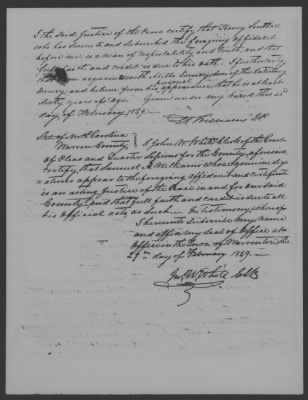 I the said Justice of the Peace certify that Henry
who has sworn to and subscribed the foregoing affidavit
before me, is a man of respectability and truth, and that
full faith and credit is due to his oath. I further certify
that I am acquainted with Mills
and believe from his appearance that he is at least
Sixty years of age. Given under my hand this
day of February 1849.
State of North Carolina
Warren County } I John W White Clerk of the Court
of Pleas and Quarter Sessions for the County aforesaid
certify, that Samuel whose genuine sig
nature appear to the foregoing affidavit and certificate
is an acting Justice of the Peace in and for our said
County and that full faith and credit is due to all
his official acts as such. In testimony whereof
I hereunto subscribe my name
and affix my seal of office at
Office in the town of Warrenton this
29 day of February 1849.
Jno W White Clk